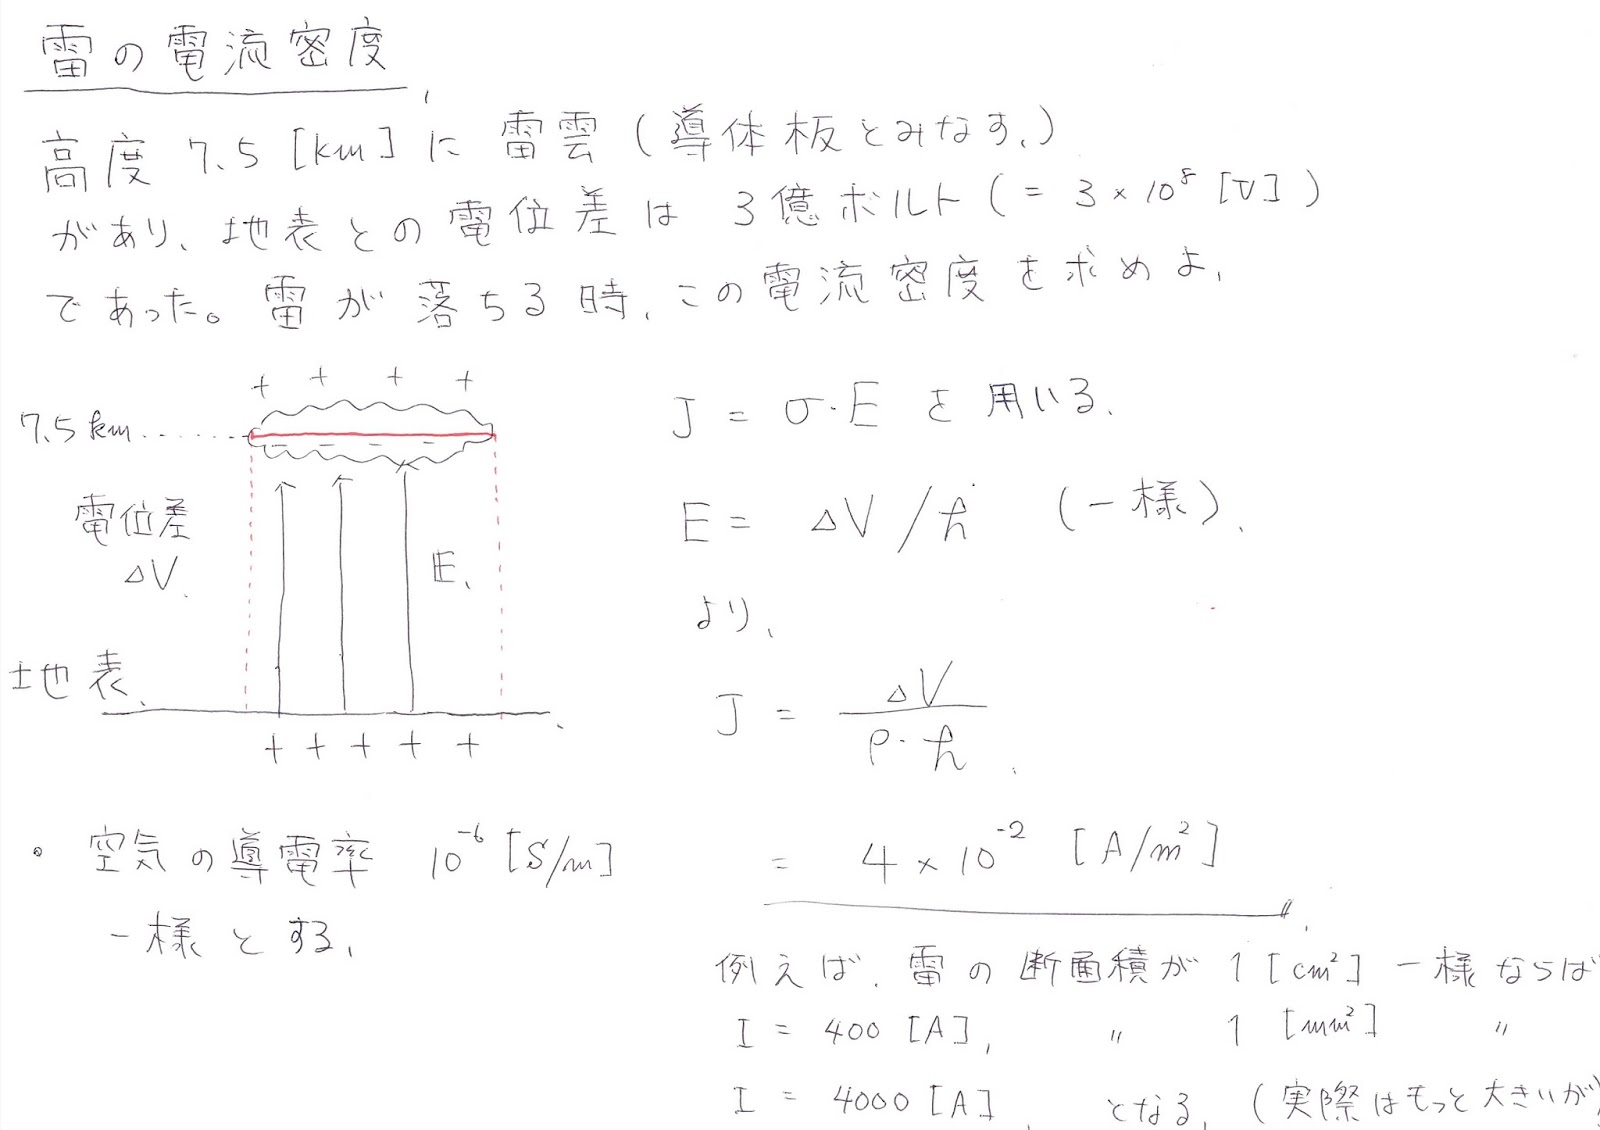 雷の電流密度
高度 7.5 [km] に 雷雲 (導体板とみなす。)
があり、地表との電位差は 3億ボルト (= 3 × 10⁸ [V])
であった。雷が落ちる時、この電流密度を求めよ。
+ + + +
7.5 km
- - - -
電位差
ΔV
E
地表
+ + + + +
・ 空気の導電率 10⁻⁶ [S/m]
一様とする。
J = σ・E を用いる。
E = ΔV / h (一様)、
より、
J = ΔV / ρ・h
= 4 × 10⁻² [A/m²]
例えば、雷の断面積が 1 [cm²] 一様ならば
I = 400 [A], 〃 1 [mm²] 〃
I = 4000 [A] となる。(実際はもっと大きいが)